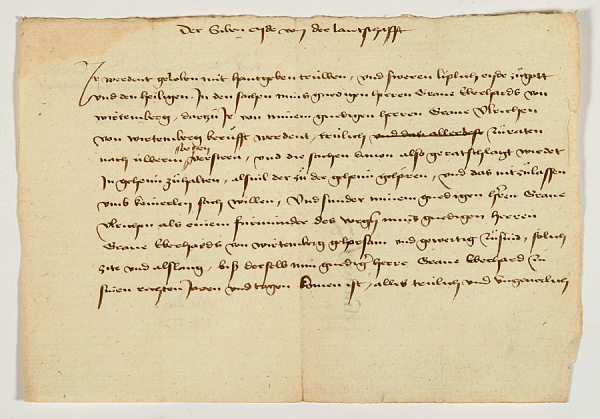 Der Siben eyde von der lantschafft
Ir werdent geloben mit hantgeben trüwen, und sweren liplich eyde zü gott
und den heiligen. In den sachen mins gnedigen herren Grave Eberhards von
wirtemberg, dartzü Ir von minem gnedigen herren Grave Ulrichen
von wirtemberg berüfft werdent, trülich und das allerbest züraten
nach üwerm besten versteen, und die sachen davon also geratschlagt wirdet
In geheim zühalten, alsvil der zü der geheim gehören, und das nit zülassen
umb keinerley sach willen, Und sunder minem gnedigen hern Grave
Ulrichen als einem furminder des mins gnedigen herren
Grave Eberhards von wirtemberg gehorsam und gewertig züsind, solich
zite und alslang, biß derselb min gnediger herre Grave Eberhard zü
sinen Jaren und tagen komen ist, alles trülich und ungeverlich